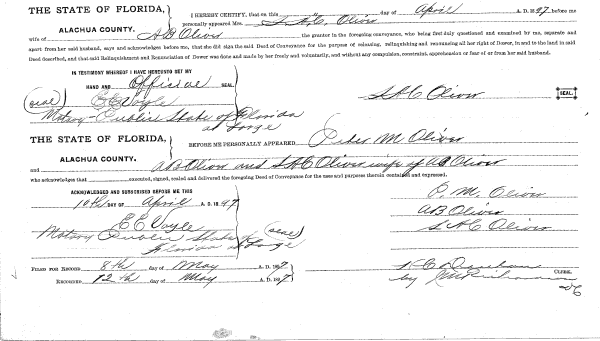 THE STATE OF FLORIDA,
ALACHUA COUNTY.
I HEREBY CERTIFY, that on this day of April A. D. 1897 before me
personally appeared Mrs. S. A. C. Oliver
wife of A B Oliver the grantor in the foregoing conveyance, who being first duly questioned and examined by me, separate and
apart from her said husband, says and acknowledges before me, that she did sign the said Deed of Conveyance for the purpose of releasing, relinquishing and renouncing all her right of Dower, in and to the land in said
Deed described, and that said Relinquishment and Renunciation of Dower was done and made by her freely and voluntarily, and without any compulsion, constraint, apprehension or fear of or from her said husband.
IN TESTIMONY WHEREOF I HAVE HEREUNTO SET MY
HAND AND Official SEAL
(seal) E E Voyle
Notary Public State of Florida
at Large
S A C Oliver SEAL
THE STATE OF FLORIDA,
ALACHUA COUNTY.
BEFORE ME PERSONALLY APPEARED M Oliver
and A B Oliver and S A C Oliver wife of A B Oliver
who acknowledges that executed, signed, sealed and delivered the foregoing Deed of Conveyance for the uses and purposes therein contained and expressed.
ACKNOWLEDGED AND SUBSCRIBED BEFORE ME THIS
10th DAY OF April A. D. 1897
E E Voyle (seal)
Notary Public State of
Florida at Large
P. M. Oliver
A B Oliver
S A C Oliver
FILED FOR RECORD 8th day of May A. D. 1897
RECORDED 12th day of May A. D. 1897
CLERK.
by
DC